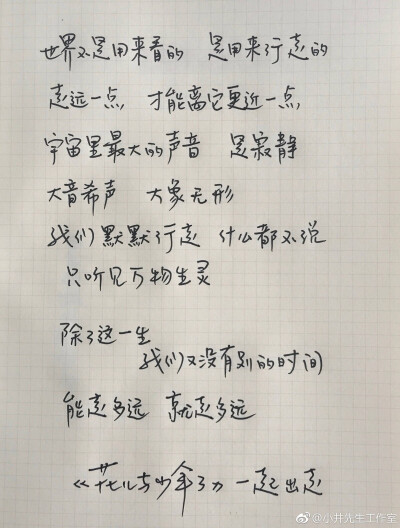 世界不是用来看的 是用来行走的
走远一点 才能离它更近一点
宇宙里最大的声音 是寂静
大音希声 大象无形
我们默默行走 什么都不说
只听见万物生灵
除了这一生
我们又没有别的时间
能走多远 就走多远
《花儿与少年3》一起出走
@小井先生工作室